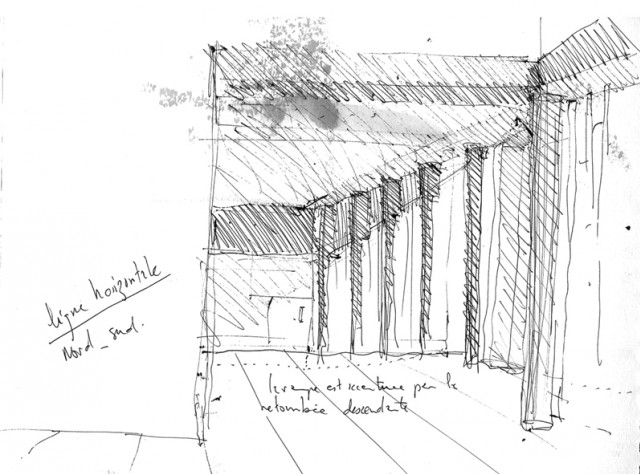 ligne horizontale
nord_sud.
la rampe est accentuée par la
retombée descendante